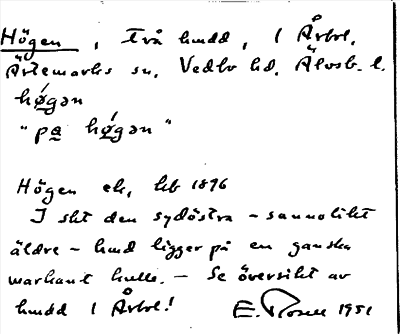 Högen, två hmdd, i Årbol,
Ärtemarks sn, Vedbo hd, Älvsb. l.
hǿgən
"pa hǿgən"
Högen ek, hb 1896
I sht den sydöstra – sannolikt
äldre – hmd ligger på en ganska
markant kulle. – Se översikt av
hmdd i Årbol! E. Rosell 1951